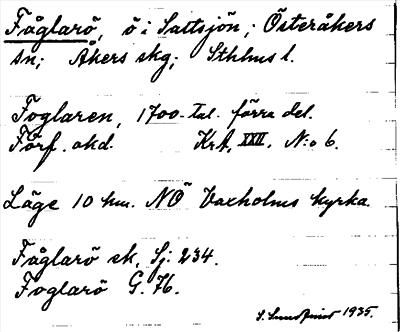 Fåglarö, ö i Saltsjön; Österåkers
sn; Åkers skg; Sthlms l.
Foglaren, 1700-tal. förra del.
Förf. okd. KrA, XXII. N:o 6.
Läge 10 km. NÖ Vaxholms kyrka.
Fåglarö ek, Sj: 234.
Foglarö G. 76.
S. Lundqvist 1935.